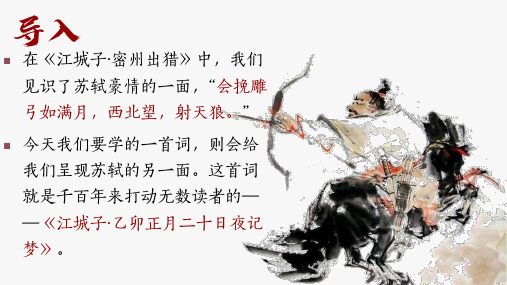 导入
在《江城子·密州出猎》中，我们
见识了苏轼豪情的一面，“会挽雕
弓如满月，西北望，射天狼。”
今天我们要学的一首词，则会给
我们呈现苏轼的另一面。这首词
就是千百年来打动无数读者的—
—《江城子·乙卯正月二十日夜记
梦》。